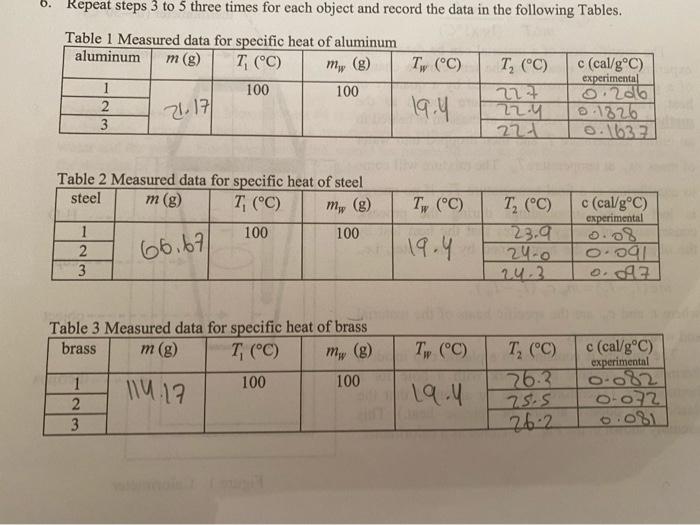 6. Repeat steps 3 to 5 three times for each object and record the data in the following Tables.
Table 1 Measured data for specific heat of aluminum
aluminum m (g) T₁ (°C) m_W (g) T_W (°C) T₂ (°C) c (cal/g°C) experimental
1 21.17 100 100 19.4 22.7 0.206
2 22.4 0.1826
3 22.1 0.1637
Table 2 Measured data for specific heat of steel
steel m (g) T₁ (°C) m_W (g) T_W (°C) T₂ (°C) c (cal/g°C) experimental
1 66.67 100 100 19.4 23.9 0.08
2 24.0 0.091
3 24.3 0.097
Table 3 Measured data for specific heat of brass
brass m (g) T₁ (°C) m_W (g) T_W (°C) T₂ (°C) c (cal/g°C) experimental
1 114.17 100 100 19.4 26.3 0.082
2 25.5 0.072
3 26.2 0.081